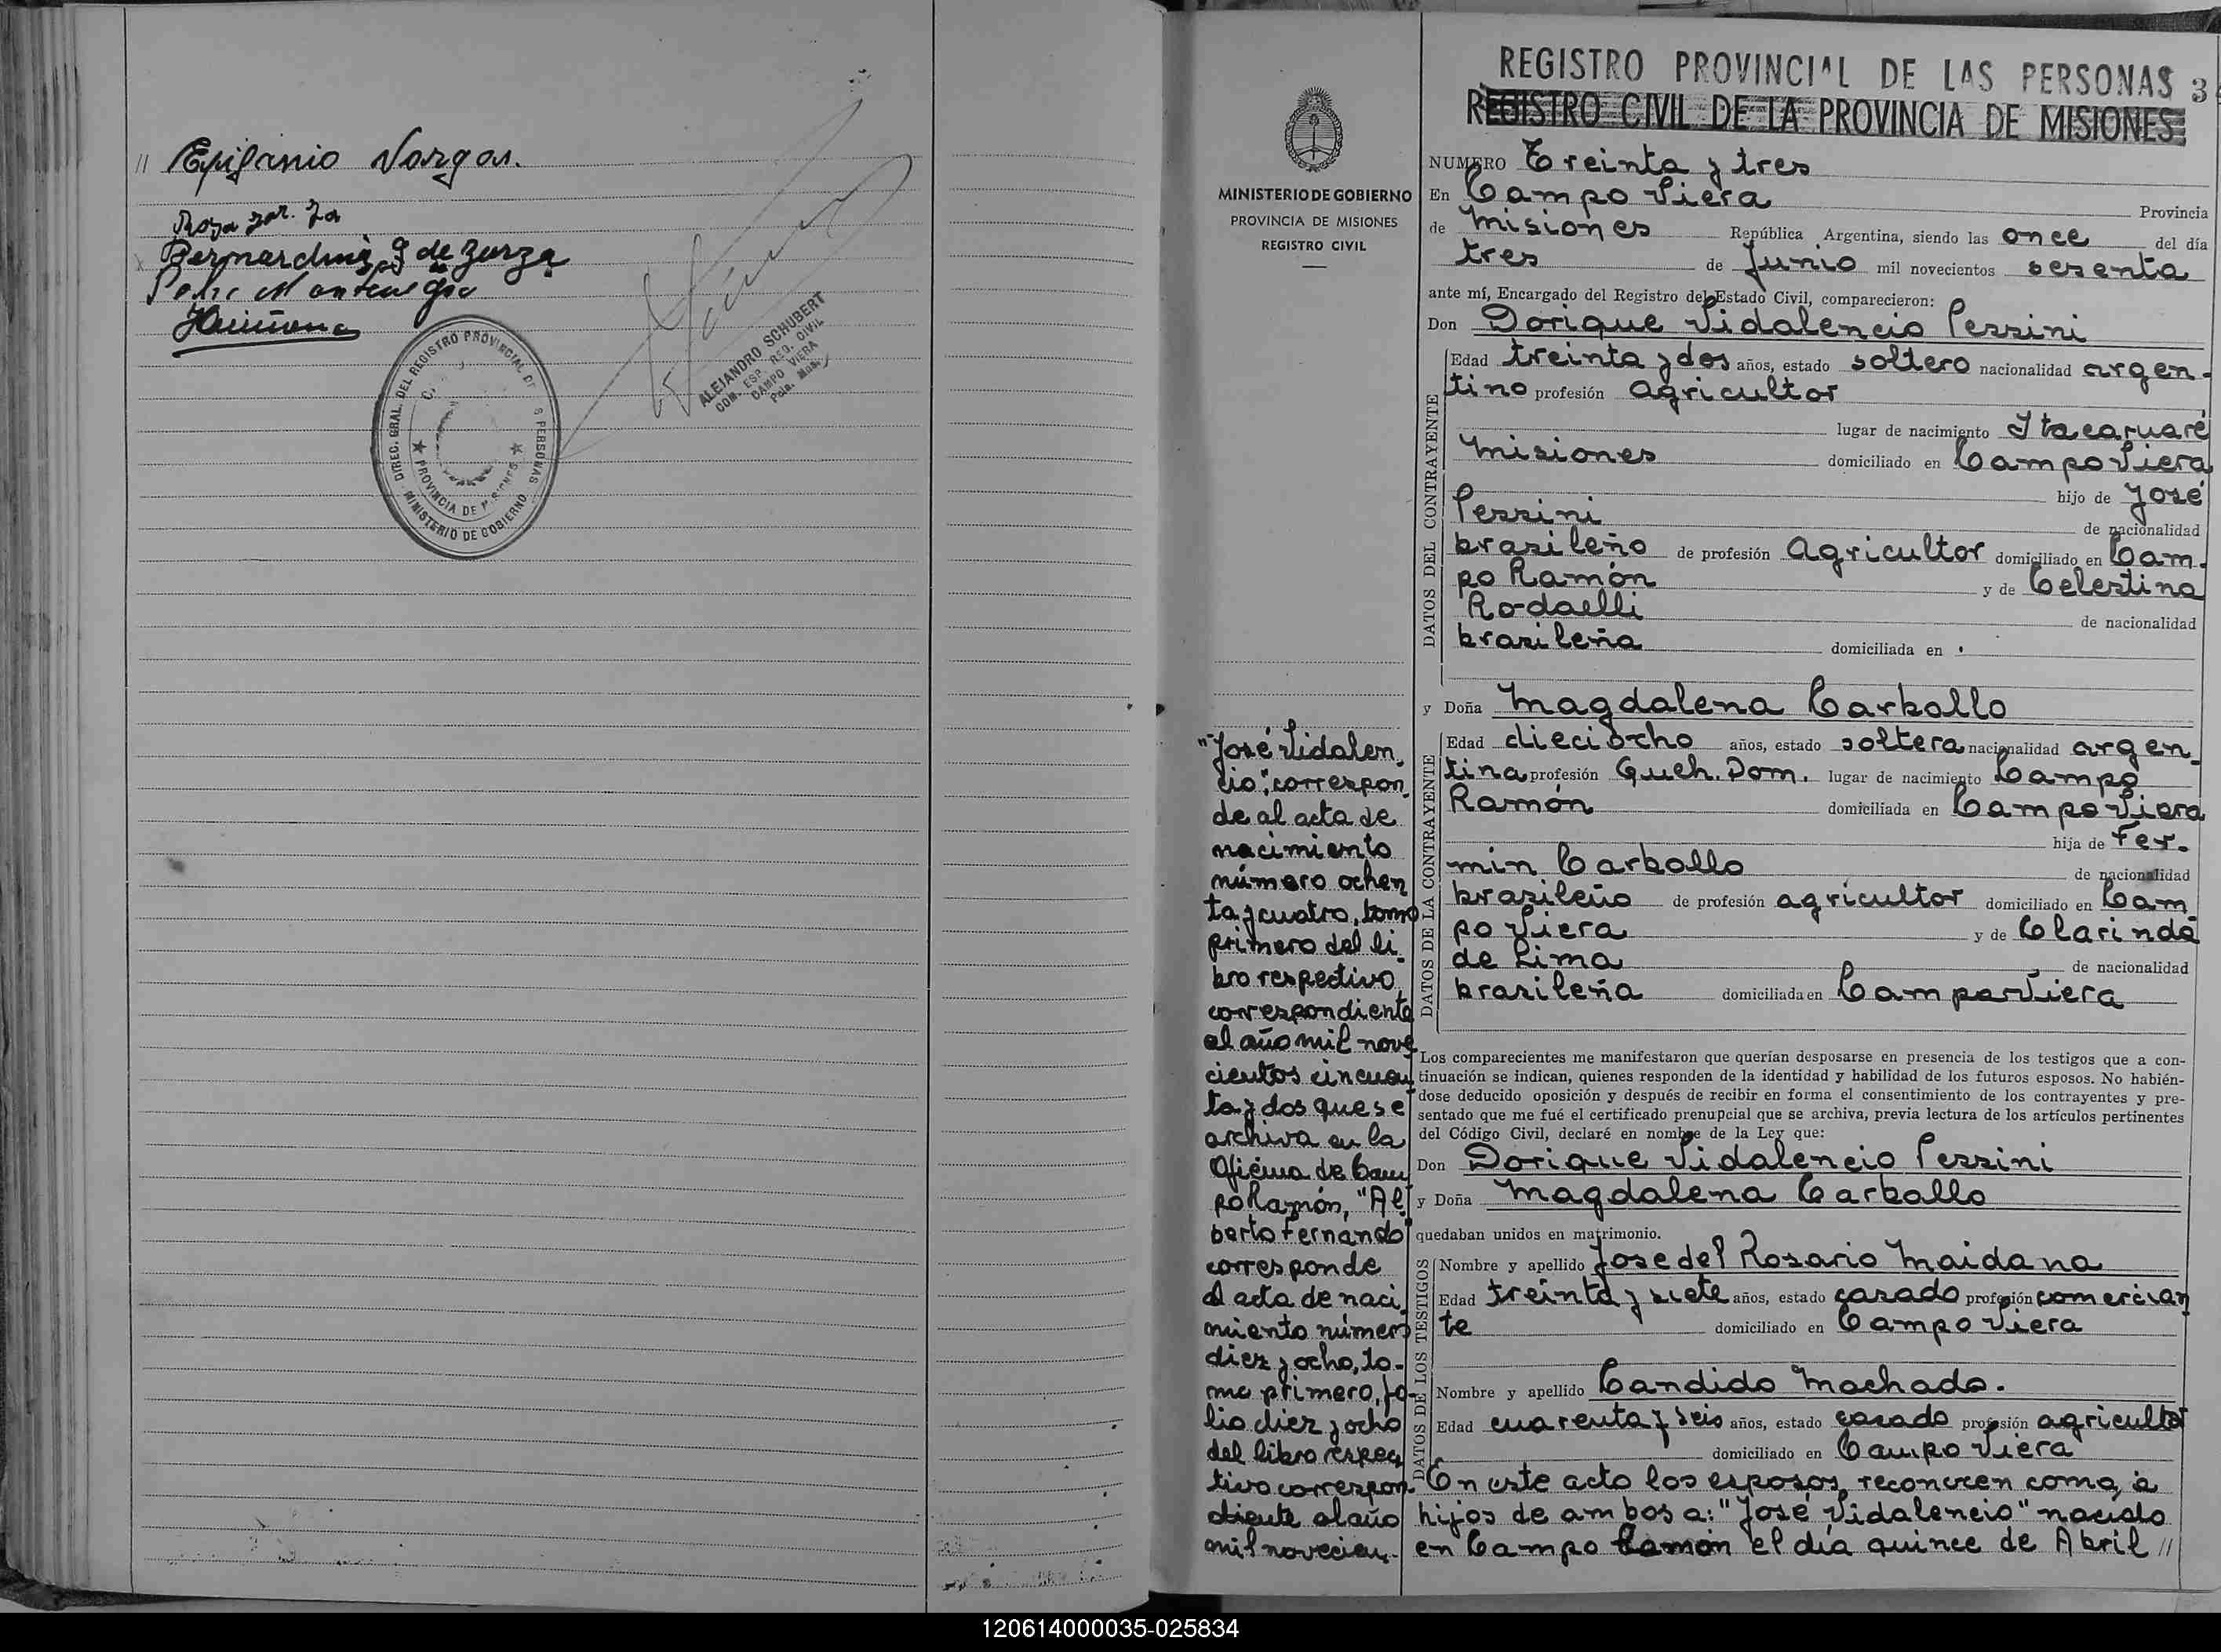 // Epifanio Vargas.
Bernardina G de Zarza
DIREC. GRAL. DEL REGISTRO PROVINCIAL DE PERSONAS
MINISTERIO DE GOBIERNO
PROVINCIA DE MISIONES
ALEJANDRO SCHUBERT
COM. ESP. REG. CIVIL
CAMPO VIERA
REGISTRO PROVINCIAL DE LAS PERSONAS 3
REGISTRO CIVIL DE LA PROVINCIA DE MISIONES
MINISTERIO DE GOBIERNO
PROVINCIA DE MISIONES
REGISTRO CIVIL
NUMERO Treinta y tres
En Campo Viera Provincia
de Misiones República Argentina, siendo las once del día
tres de Junio mil novecientos sesenta
ante mí, Encargado del Registro del Estado Civil, comparecieron:
Don Dorique Vidalencio Pezzini
DATOS DEL CONTRAYENTE
Edad treinta y dos años, estado soltero nacionalidad argen-
tino profesión Agricultor
lugar de nacimiento Itacaruaré
Misiones domiciliado en Campo Viera
hijo de José
Pezzini de nacionalidad
brasileño de profesión Agricultor domiciliado en Cam-
po Ramón y de Celestina
Rodaelli de nacionalidad
brasileña domiciliada en
y Doña Magdalena Carballo
DATOS DE LA CONTRAYENTE
Edad dieciocho años, estado soltera nacionalidad argen-
tina profesión Queh. Dom. lugar de nacimiento Campo
Ramón domiciliada en Campo Viera
hija de Fer-
min Carballo de nacionalidad
brasileño de profesión agricultor domiciliado en Cam-
po Viera y de Clarinda
de Lima de nacionalidad
brasileña domiciliada en Campo Viera
Los comparecientes me manifestaron que querían desposarse en presencia de los testigos que a con-
tinuación se indican, quienes responden de la identidad y habilidad de los futuros esposos. No habién-
dose deducido oposición y después de recibir en forma el consentimiento de los contrayentes y pre-
sentado que me fué el certificado prenupcial que se archiva, previa lectura de los artículos pertinentes
del Código Civil, declaré en nombre de la Ley que:
Don Dorique Vidalencio Pezzini
y Doña Magdalena Carballo
quedaban unidos en matrimonio.
DATOS DE LOS TESTIGOS
Nombre y apellido Jose del Rosario Maidana
Edad treinta y siete años, estado casado profesión comercian
te domiciliado en Campo Viera
Nombre y apellido Candido Machado.
Edad cuarenta y seis años, estado casado profesión agricultor
domiciliado en Campo Viera
En este acto los esposos reconocen como a
hijos de ambos a: "José Vidalencio" nacido
en Campo Ramón el día quince de Abril //
"José Vidalen
cio": correspon
de al acta de
nacimiento
número ochen
ta y cuatro, tomo
primero del li
bro respectivo
correspondiente
al año mil nove
cientos cincuen
ta y dos que se
archiva en la
Oficina de Cam
po Ramón, "Al
berto Fernando"
corresponde
al acta de naci
miento número
diez y ocho, to-
mo primero, fo-
lio diez y ocho
del libro respec
tivo correspon-
diente al año
mil novecien-
120614000035-025834